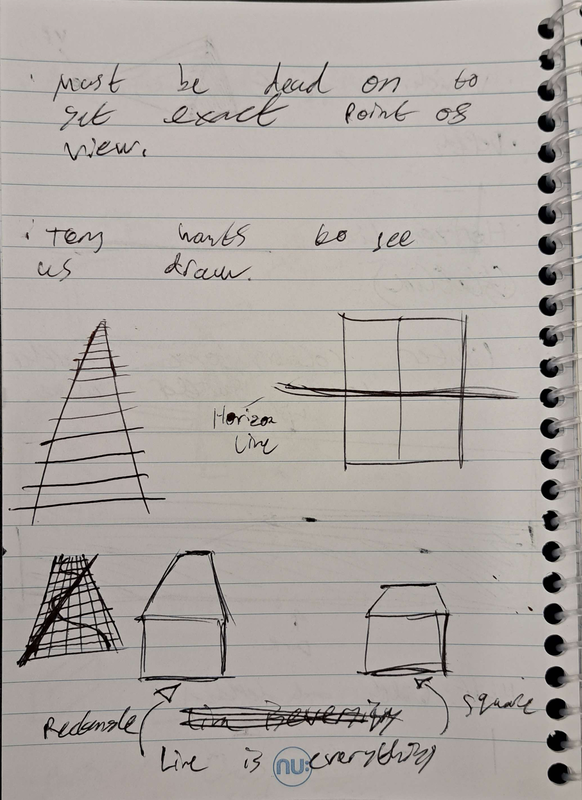 must be dead on to
get exact point of
view.
Tony wants to see
us draw.
Horizon
Line
Rectangle
square
Line is everything
nu: